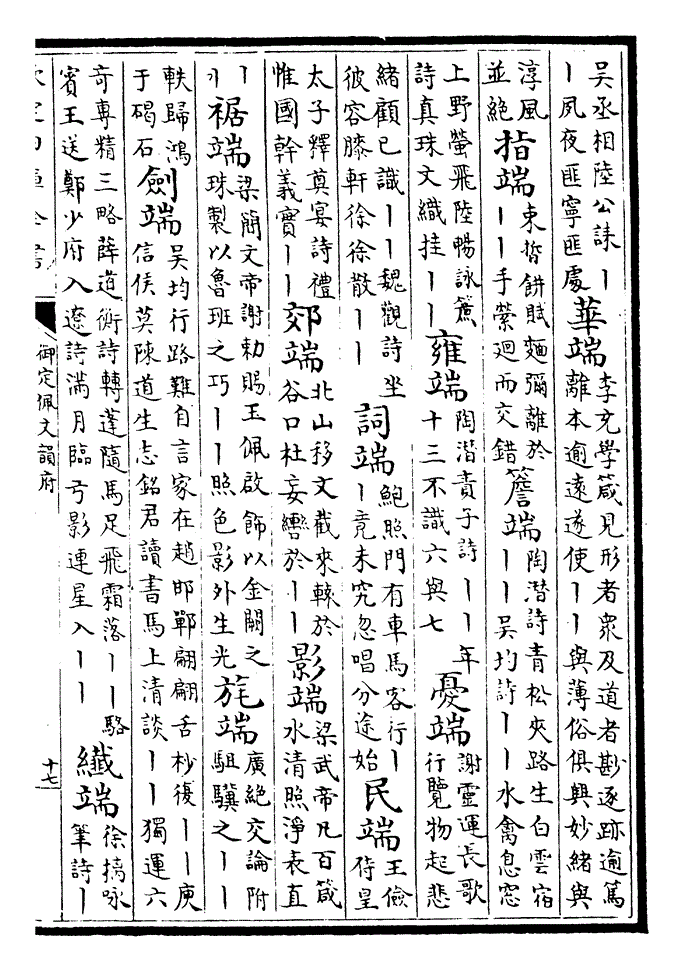 吳丞相陸公誄丨丨夙夜匪寧匪處華端李充學箴見形者衆及道者尠逐跡逾篤離本逾遠遂使丨丨與薄俗俱興妙緒與
淳風並絕指端束晳餅賦麵彌離於丨丨手縈迴而交錯簷端陶潛詩青松夾路生白雲宿丨丨吳均詩丨丨水禽息窓
上野螢飛陸暢詠簾詩真珠文織挂丨丨雍端陶潛責子詩丨丨年十三不識六與七憂端謝靈運長歌行覽物起悲
緒顧已識丨丨魏觀詩坐彼容膝軒徐徐散丨丨詞端鮑照門有車馬客行丨丨竟未究忽唱分途始民端王儉侍皇
太子釋奠宴詩禮惟國幹義實丨丨郊端北山移文截來轅於谷口杜妄轡於丨丨影端梁武帝凡百箴水清照淨表直
丨丨裾端梁簡文帝謝勅賜玉佩啟飾以金闕之珠製以魯班之巧丨丨照色影外生光旄端廣絕交論附駔驥之丨丨
軼歸鴻于碣石劍端吳均行路難自言家在趙邯鄲翩翩舌杪復丨丨庾信侯莫陳道生志銘君讀書馬上清談丨丨獨運六
奇專精三略薛道衡詩轉蓬隨馬足飛霜落丨丨駱賓王送鄭少府入遼詩滿月臨弓影連星入丨丨纖端徐摛詠筆詩丨
御定佩文韻府
十七